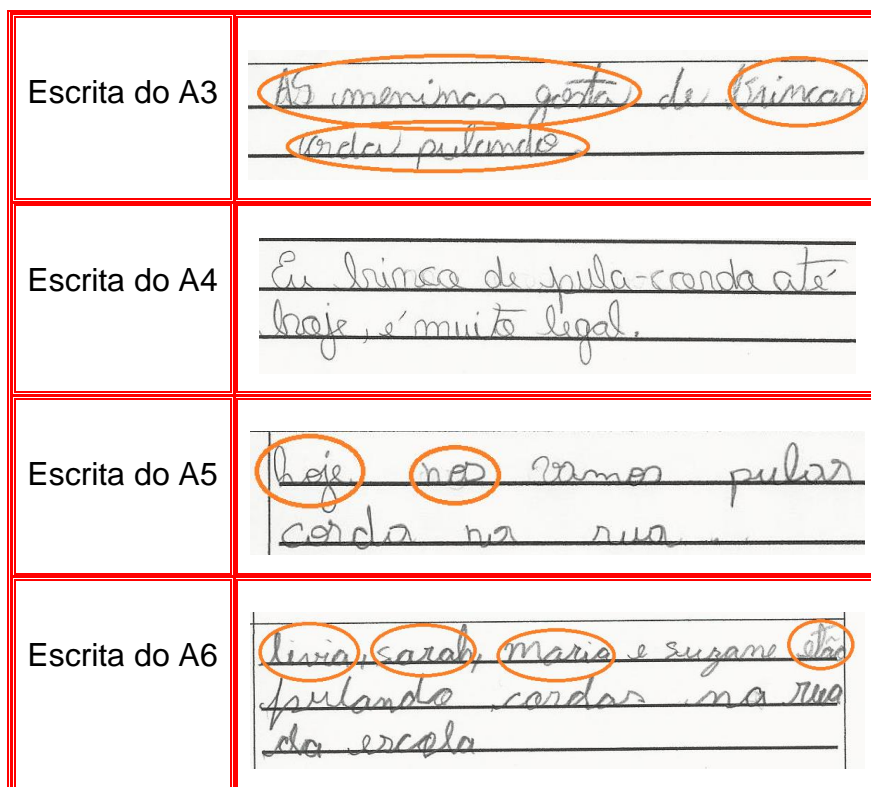 Escrita do A3
As meninas gosta de Brincar
corda pulando.
Escrita do A4
Eu brinco de pula-corda até
hoje, é muito legal.
Escrita do A5
hoje nos vamos pular
corda na rua.
Escrita do A6
livia, sarah, maria e suzane etão
pulando cordas na rua
da escola